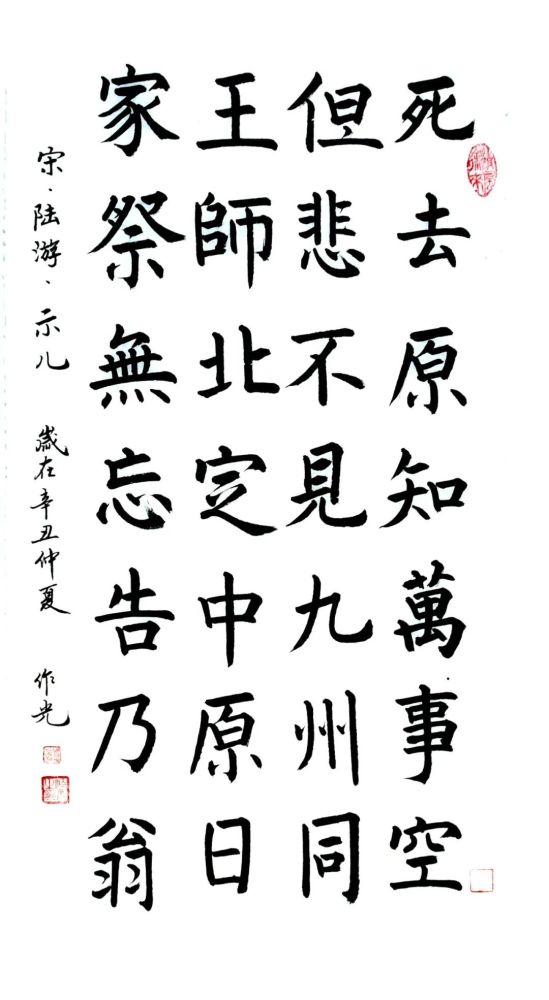 死去原知萬事空
但悲不見九州同
王師北定中原日
家祭無忘告乃翁
宋·陆游·示儿 歲在辛丑仲夏 作光